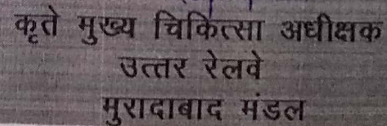 कृते मुख्य चिकित्सा अधीक्षक
उत्तर रेलवे
मुरादाबाद मंडल